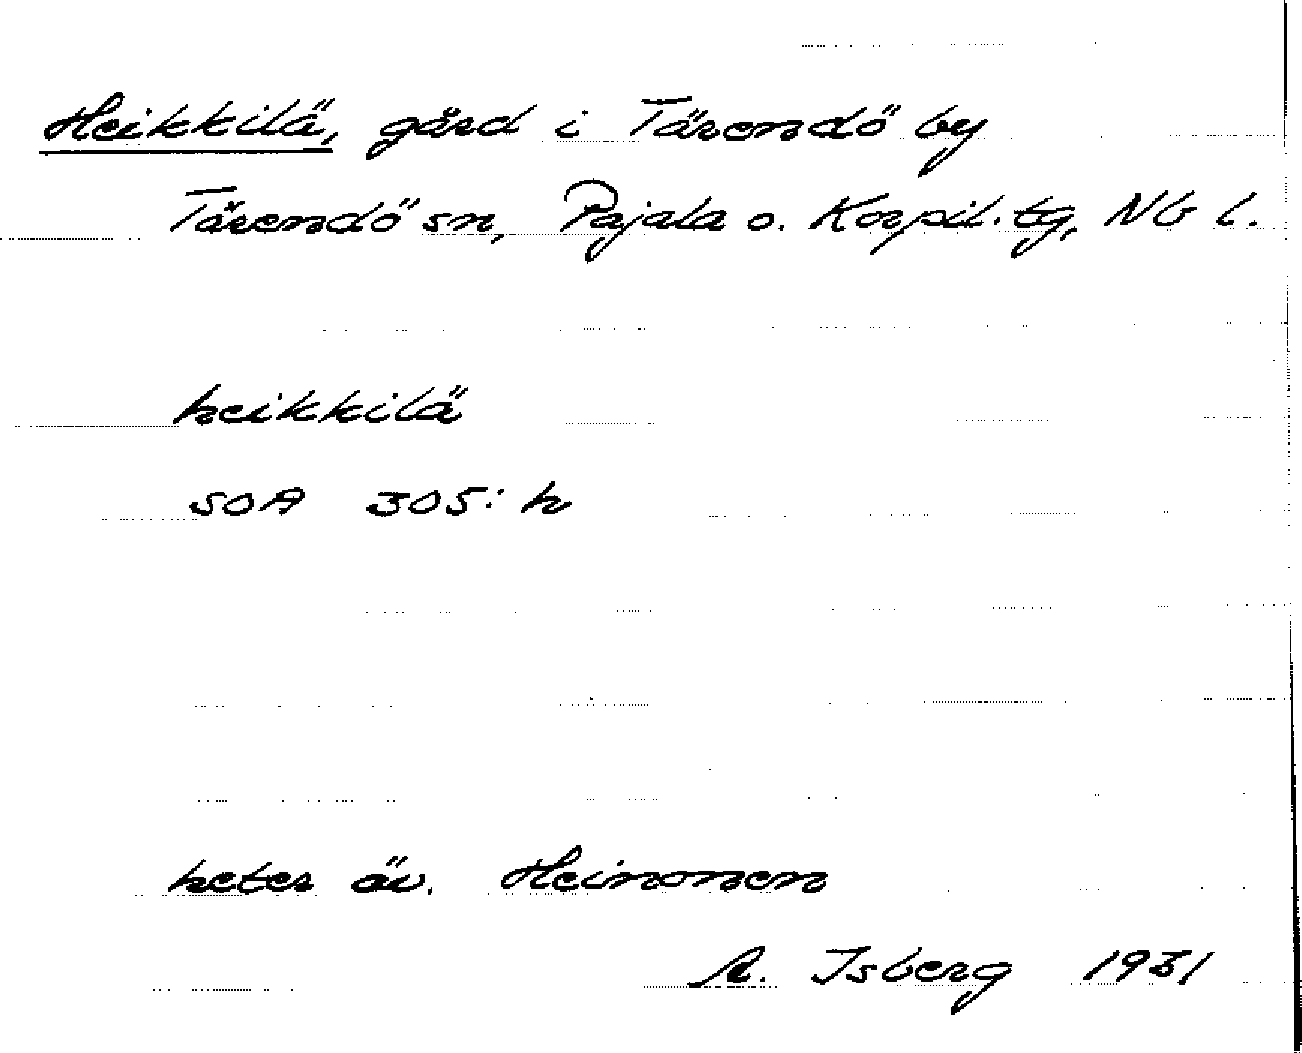 Heikkilä, gård i Tärendö by
Tärendö sn, Pajala o. Korpil. tg, Nb l.
heikkilä
SOA 305: h
heter äv. Heinonen
A. Isberg 1931